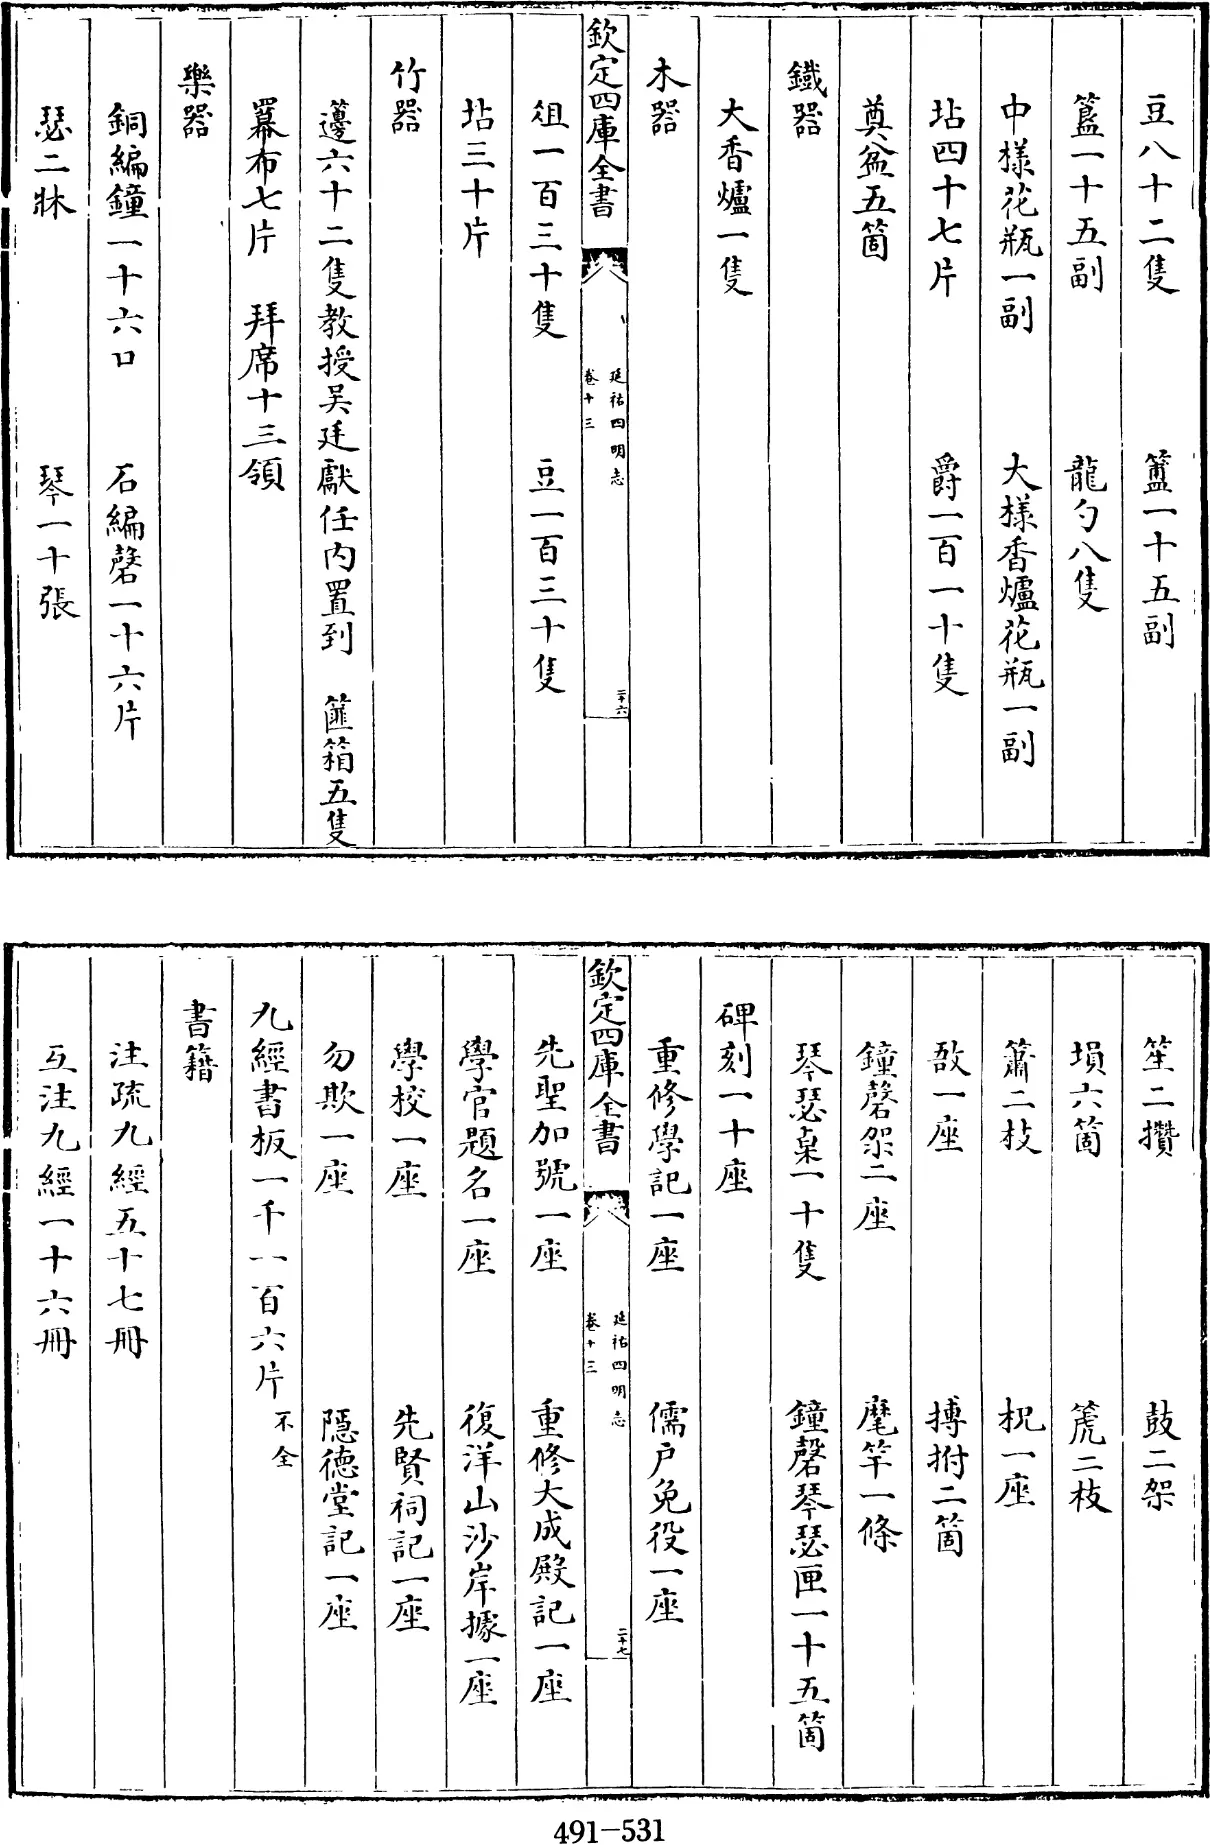 豆八十二隻　簠一十五副
簋一十五副　龍勺八隻
中樣花瓶一副　大樣香爐花瓶一副
坫四十七片　爵一百一十隻
奠盆五箇
鐵器
大香爐一隻
木器
欽定四庫全書
延祐四明志
卷十三
二十六
俎一百三十隻　豆一百三十隻
坫三十片
竹器
籩六十二隻教授吴廷獻任内置到　篚箱五隻
羃布七片　拜席十三領
樂器
銅編鐘一十六口　石編磬一十六片
瑟二牀　琴一十張
笙二攢　鼓二架
塤六箇　箎二枝
簫二枝　柷一座
敔一座　搏拊二箇
鐘磬架二座　麾竿一條
琴瑟桌一十隻　鐘磬琴瑟匣一十五箇
碑刻一十座
重修學記一座　儒户免役一座
欽定四庫全書
延祐四明志
卷十三
二十七
先聖加號一座　重修大成殿記一座
學官題名一座　復洋山沙岸據一座
學校一座　先賢祠記一座
勿欺一座　隱德堂記一座
九經書板一千一百六片不全
書籍
注疏九經五十七冊
互注九經一十六冊
491-531